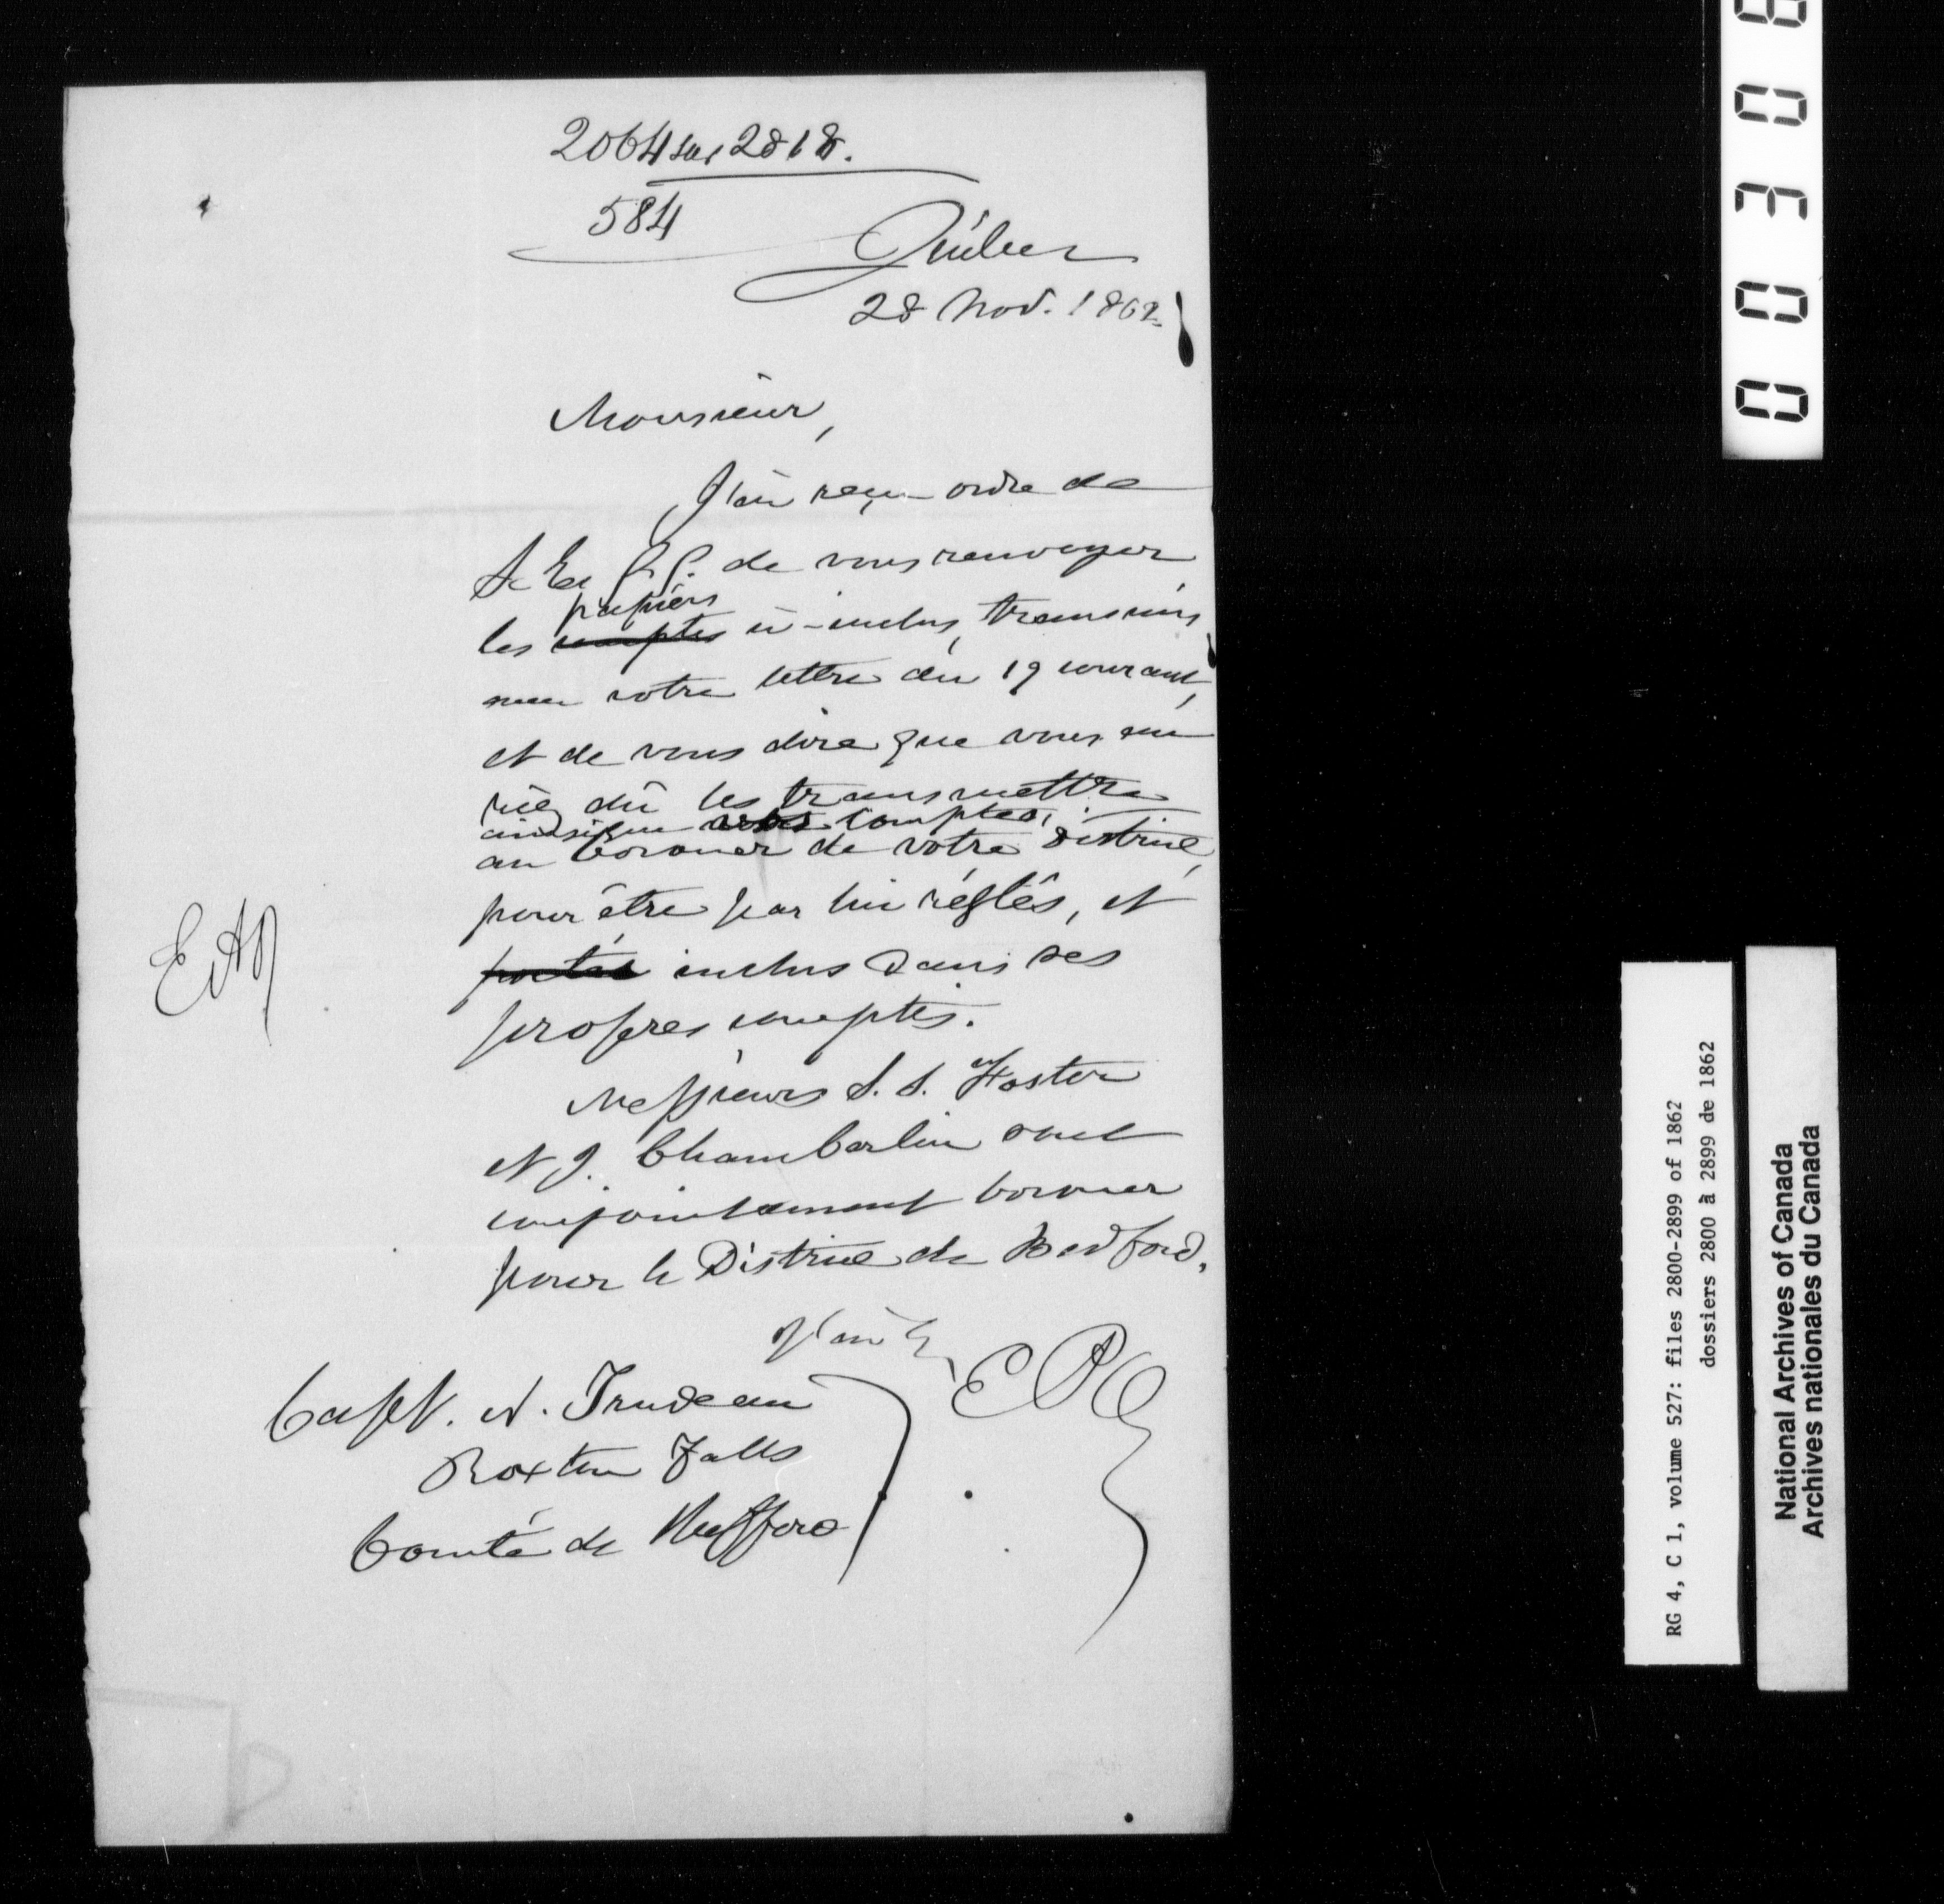 2064 sur 2818.
584
Québec
28 Nov. 1862
Monsieur,
J'ai reçu ordre de
S. Ex. G. G. de vous renvoyer
papiers
les comptes ci-inclus, transmis
votre lettre du 19 courant,
et de vous dire que vous au
riez dû les transmettre
ainsi que vos comptes,
au Coroner de votre District,
pour être par lui réglés, et
portés inclus dans ses
propres comptes.
Messieurs S. S. Foster
et J. Chamberlin sont
conjointement Coroner
pour le District de Bedford.
J'ai &
E P
Capt. N. Trudeau
Roxton Falls
Comté de Shefford
RG 4, C 1, volume 527: files 2800-2899 of 1862
dossiers 2800 à 2899 de 1862
National Archives of Canada
Archives nationales du Canada